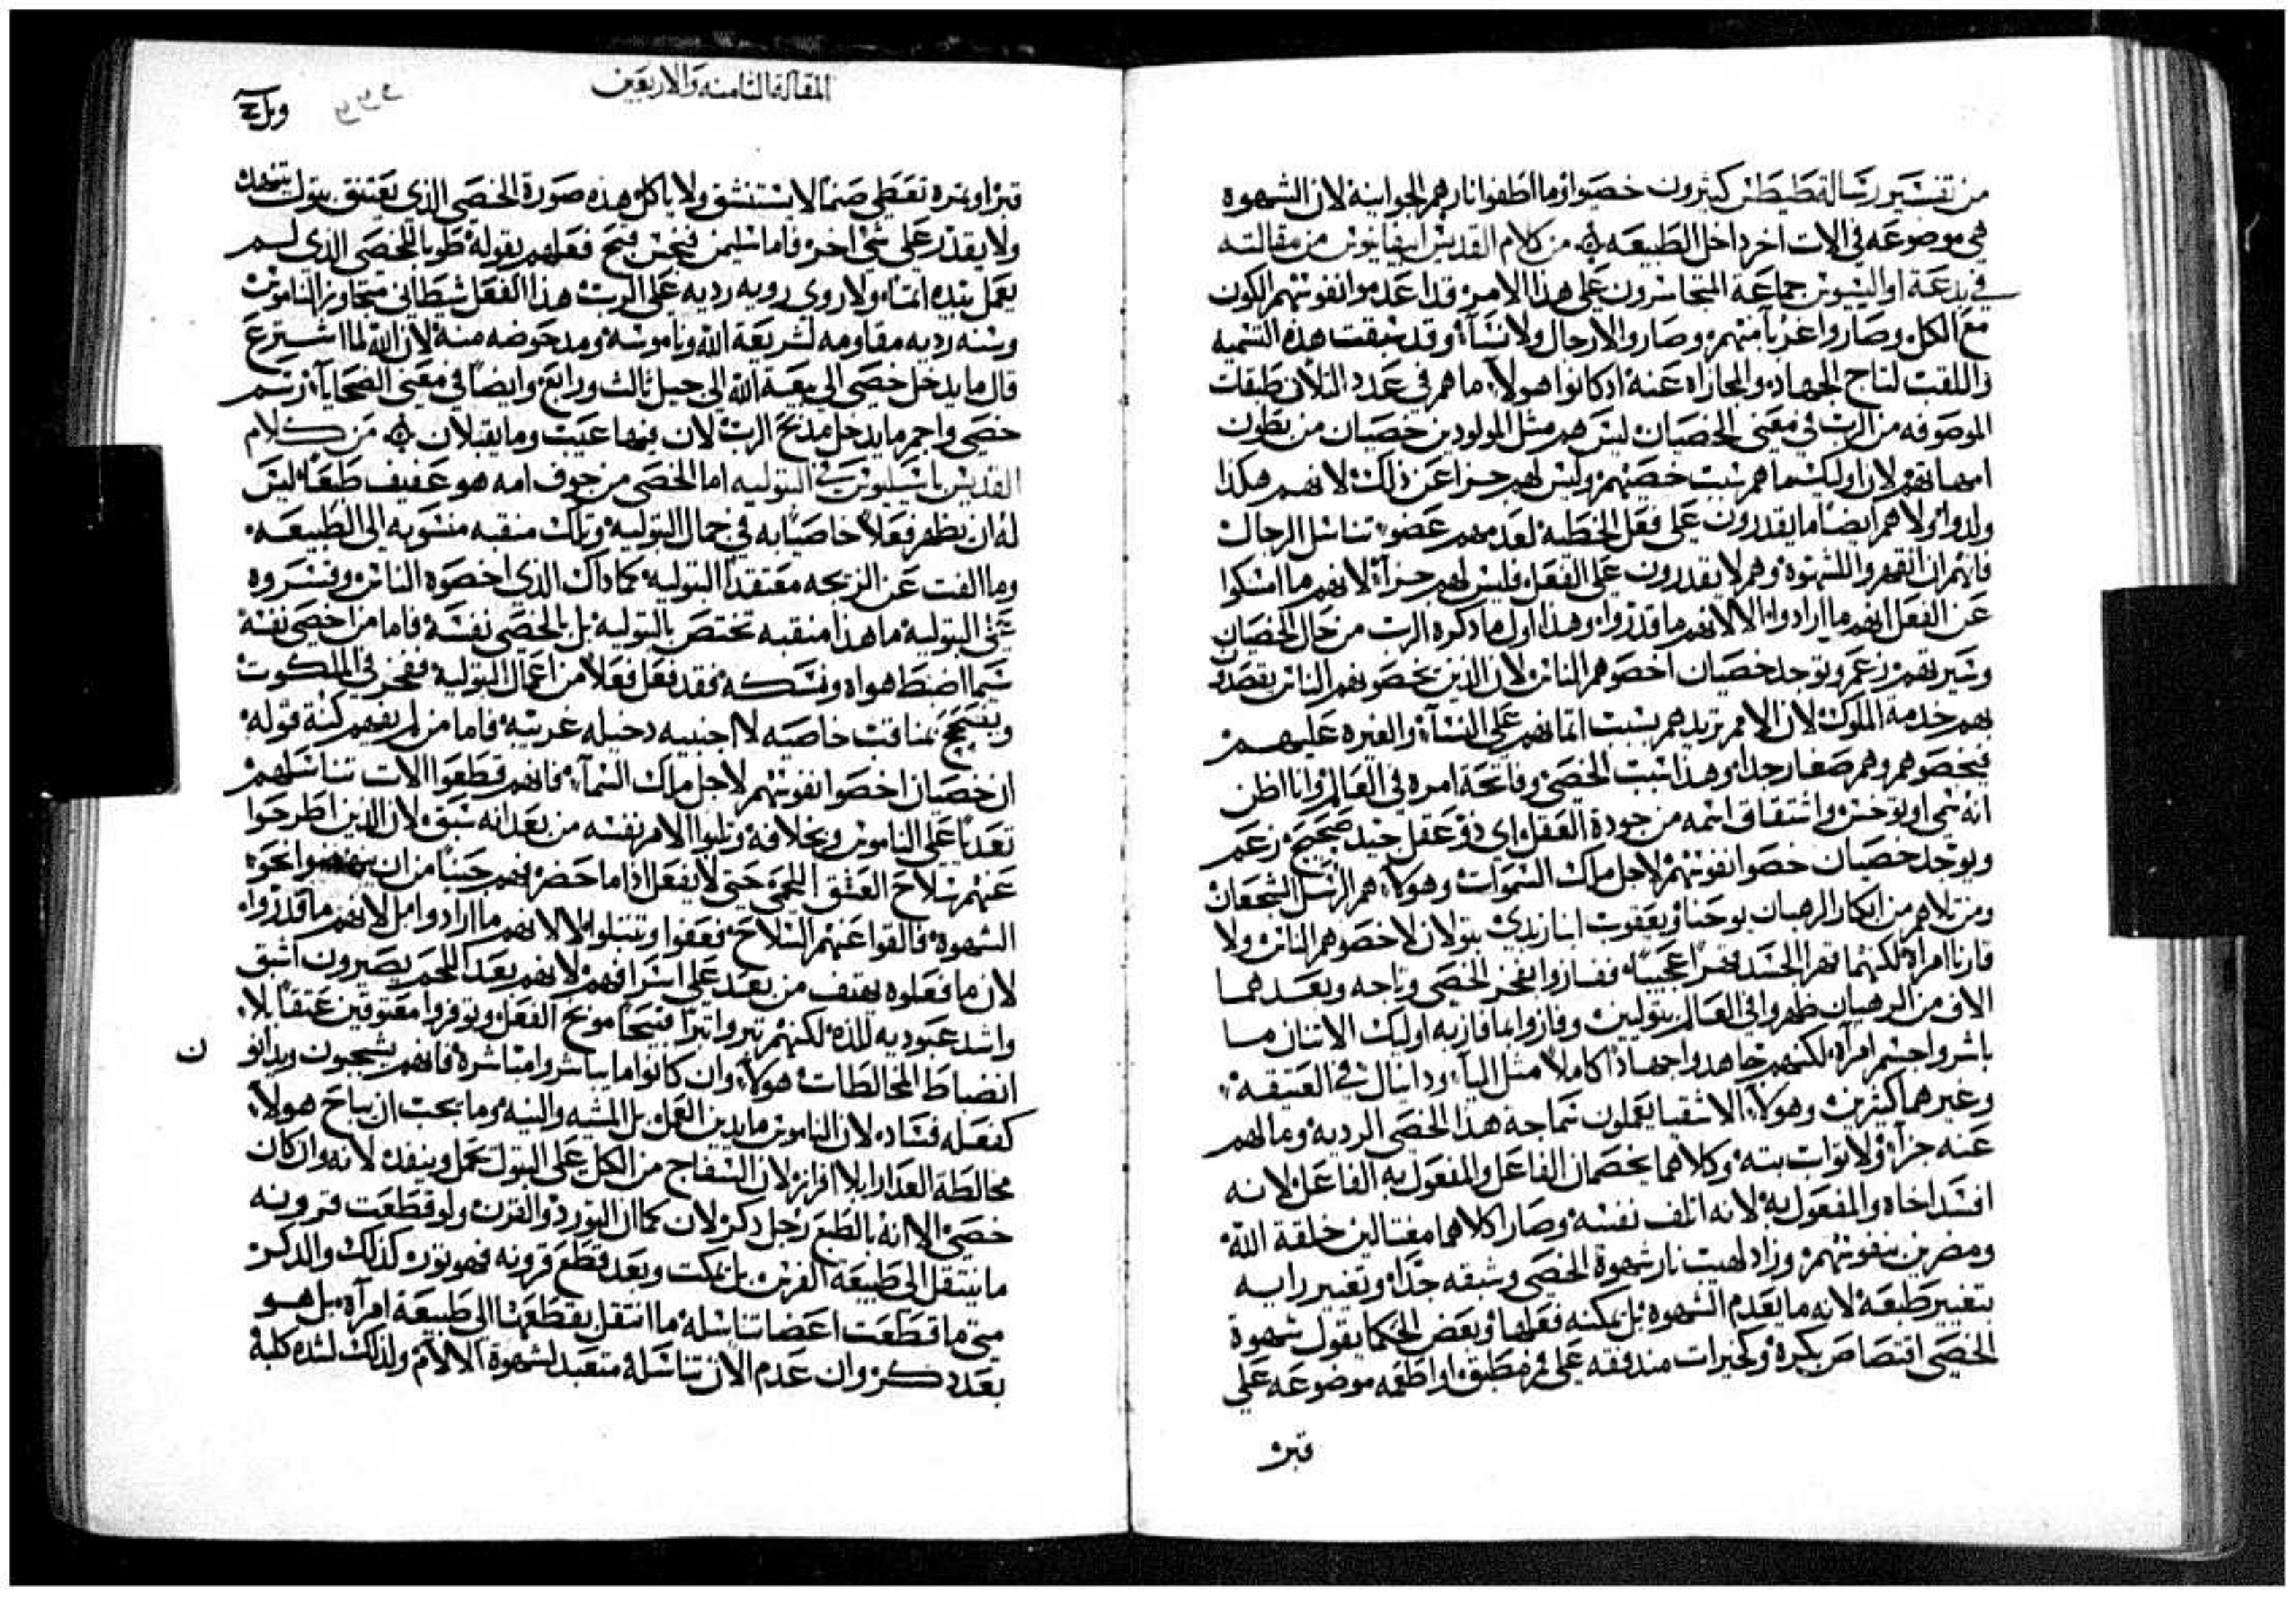 من تفسير رسالة طيطس كثيرون خصيوا وما اطفوا نارهم الجوانية لان الشهوة
هي موضوعه في الات اخر داخل الطبيعه من كلام القديس ابيفانيوس من مقالته
في بدعة اواليسيوس جماعة المتجاسرون على هذا الامر قد اعدموا نفوسهم الكون
مع الكل وصاروا غربآ منهم وصاروا لا رجال ولا نسآء وقد سبقت هذه التسميه
واللقب لتاج الجهاد والمجازاه عنه اد كانوا هولاء ما هم في عدد الثلاث طبقات
الموصوفه من الرب في معنى الخصيان ليس هم مثل المولودين خصيان من بطون
امهاتهم لان اوليك ما هم سبب خصيهم وليس لهم جزا عن ذلك لانهم هكذا
ولدوا ولا هم ايضا ما يقدرون على فعل الخطيه لعدمهم عضو تناسل الرجال
فانهم ان انقهروا للشهوة وهم لا يقدرون على الفعل فليس لهم جزآء لانهم ما امسكوا
عن الفعل انهم ما ارادوا الا لانهم ما قدروا وهذا اول ما دكره الرب من حال الخصيان
وسيرتهم زعم وتوجد خصيان اخصوهم الناس لان الذين يخصونهم الناس يقصدون
بهم خدمة الملوك لان الامم تريدهم بسبب ائمانهم على النسآء والغيره عليهم
فيخصوهم وهم صغار جدا وهذا سبب الخصي وفاتحة امره في العالم وانا اظن
انه سمي اونوخس واشتقاق اسمه من جودة العقل اي ذو عقل جيد صحيح زعم
ويوجد خصيان خصوا نفوسهم لاجل ملك السموات وهولاء هم الرسل الشجعان
ومن تلاهم من ابكار الرهبان يوحنا ويعقوب ابنا زبدي بتولان لا خصوهم الناس ولا
قارنا امراة لكنهما قهرا الجسد قهرا عجيبا ففازوا بفخر الخصي وتاجه وبعدهما
الاف من الرهبان ظهروا في العالم بتوليين وفازوا بما فاز به اوليك الاتنان ما
باشروا جسم امرآة لكنهم جاهدوا جهادا كاملا مثل اليآس ودانيال في العتيقة
وغيرهما كثيرين وهولاء الاشقيا يعملون سماجة هذا الخصي الرديه وما لهم
عنه جزآء ولا ثواب بته وكلاهما يخصمان الفاعل والمفعول به الفاعل لانه
افسد اخاه والمفعول به لانه اتلف نفسه وصارا كلاهما مغتالين خلقة الله
ومضرين بنفوسهم وزاد لهيب نار شهوة الخصي وشبقه جدا وتغيير رايه
بتغيير طبعه لانه ما يعدم الشهوه بل يمكنه فعلها وبعض الحكما يقول شهوة
الخصي اقتصاص بكرة وكخيرات مندفقه على فم مطبق او اطعمه موضوعه على
قبر
المقالة الثامنه والاربعين
قبر او يده تغطي صنما لا يستنشق ولا ياكل هذه صورة الخصي الذي يعتنق بتول يتنهد
ولا يقدر على شي اخر فاما سليمن فيحسن قبح فعلهم بقوله طوبا للخصي الذي لم
يعمل بيده اثما ولا روي رويه رديه على الرب هذا الفعل شيطاني متجاوز الناموس
وسنه رديه مقاومه لشريعة الله وناموسه ومدحوضه منه لان الله لما اشترع
قال ما يدخل خصي الى بيعة الله الى جيل ثالث ورابع وايضا في معنى الضحايآء رسم
خصي واجم ما يدخل مذبح الرب لان فيها عيب وما يقبلان من كلام
القديس باسيليوس في البتوليه اما الخصي من جوف امه هو عفيف طبعا ليس
له ان يظهر فعلا خاصيا به في جمال البتوليه وتلك منقبه منسوبه الى الطبيعه
وما الفت عن الزيجه معتقدا البتوليه كما داك الذي اخصوه الناس وقسروه
على البتوليه ما هذا منقبه تختص بالبتوليه بل بالخصي نفسه فاما من اخصى نفسه
سيما اضبط هواه ونسكه فقد فعل فعلا من اعمال البتوليه ففخر في الملكوت
ويفتخر بمناقب خاصيه لا اجنبيه دخيله غريبه فاما من لم يفهم كنه قوله
ان خصيان اخصوا نفوسهم لاجل ملك السمآء فانهم قطعوا الات تناسلهم
تعديا على الناموس وبخلافه وتلوا الامر نفسه من بعد انه سبق لان الذين اطرحوا
عنهم سلاح العشق اللحمي حتى لا يفعل اداما حضر فهم جبنا من ان ينهضوا نحو
الشهوه فالقوا عنهم السلاح فعفوا وتبتلوا لا لانهم ما ارادوا بل لانهم ما قدروا
لان ما فعلوه يهتف من بعد على اسرافهم لانهم بعد اللحم يصيرون اشبق
واشد عبوديه للذه لكنهم تبروا تبرا قبيحا موبخ الفعل وتوفروا معتوقين عتقا بلا
انضباط المخالطات هولاء وان كانوا ما يباشروا مباشرة فانهم يشجبون ويدانون
كفعله فساد لان الناموس ما يدين العمل بل المشيه والنيه وما يجب ان يباح هولاء
مخالطة العدارا بلا افراز لان السفاح من الكل على البتول عمل وينفد لانه وان كان
خصي الا انه بالطبع رجل دكر لان كما ان التور ذو القرن ولو قطعت قرونه
ما ينتقل الى طبيعة الفرس بل يمكث وبعد قطع قرونه فهو تور كذلك والدكر
متى ما قطعت اعضا تناسله ما انتقل بقطعها الى طبيعة امرآة بل هو
بعد دكر وان عدم الات تناسله متعبد لشهوة الالام ولذلك لشده كلبه